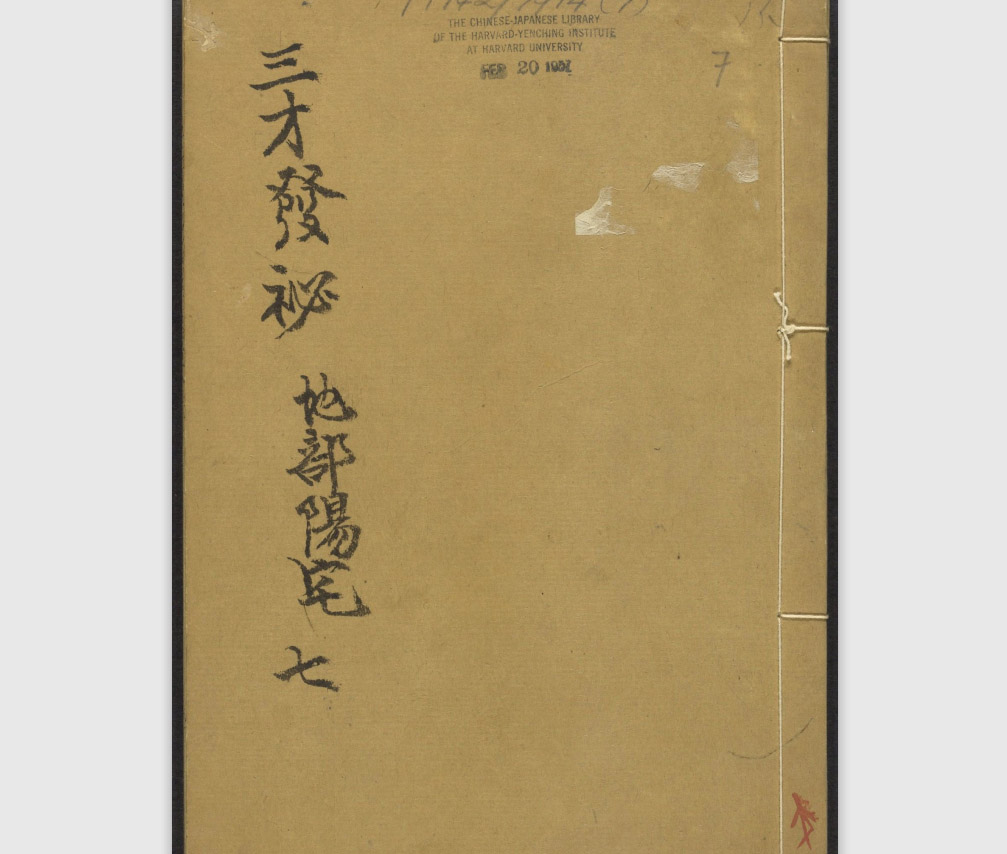 THE CHINESE-JAPANESE LIBRARY
OF THE HARVARD-YENCHING INSTITUTE
AT HARVARD UNIVERSITY
FEB 20 1957
7
三才發祕 地部陽宅 七